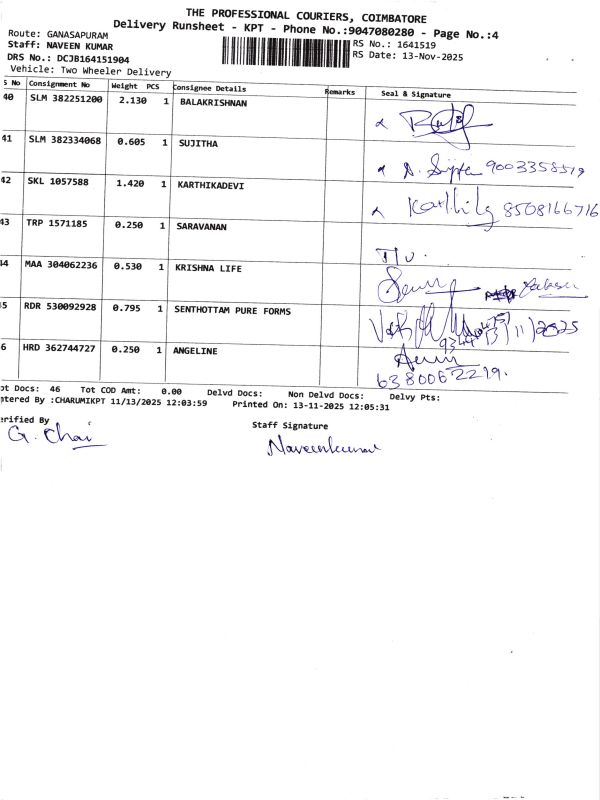 THE PROFESSIONAL COURIERS, COIMBATORE
Delivery Runsheet - KPT - Phone No.:9047080280 - Page No.:4
Route: GANASAPURAM
Staff: NAVEEN KUMAR
RS No.: 1641519
DRS No.: DCJB164151904
RS Date: 13-Nov-2025
Vehicle: Two Wheeler Delivery
S No Consignment No Weight PCS Consignee Details Remarks Seal & Signature
40 SLM 382251200 2.130 1 BALAKRISHNAN
41 SLM 382334068 0.605 1 SUJITHA 9003358519
42 SKL 1057588 1.420 1 KARTHIKADEVI 8508166716
43 TRP 1571185 0.250 1 SARAVANAN
44 MAA 304062236 0.530 1 KRISHNA LIFE
45 RDR 530092928 0.795 1 SENTHOTTAM PURE FORMS 13/11/2025
6 HRD 362744727 0.250 1 ANGELINE
6380062219.
ot Docs: 46 Tot COD Amt: 0.00 Delvd Docs: Non Delvd Docs: Delvy Pts:
ntered By :CHARUMIKPT 11/13/2025 12:03:59 Printed On: 13-11-2025 12:05:31
erified By
Staff Signature
G. Chai
Naveenkumar